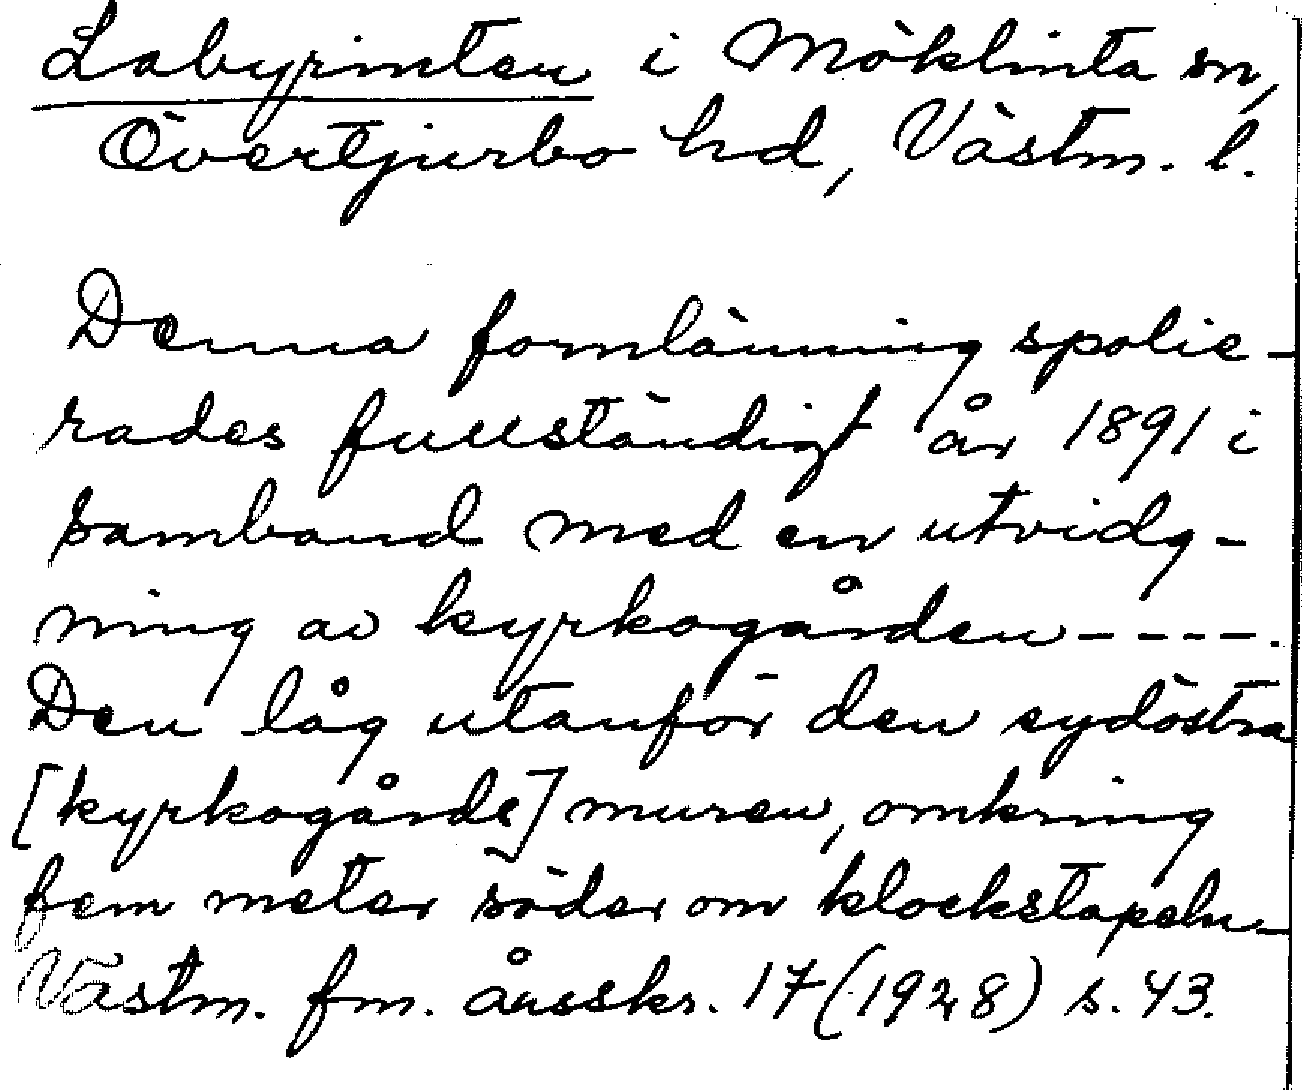 Labyrinten i Möklinta sn,
Övertjurbo hd, Västm. l.
Denna fornlämning spolie-
rades fullständigt år 1891 i
samband med en utvidg-
ning av kyrkogården----.
Den låg utanför den sydöstra
[kyrkogårds]muren, omkring
fem meter söder om klockstapeln.
Västm. fm. årsskr. 17 (1928) s. 43.